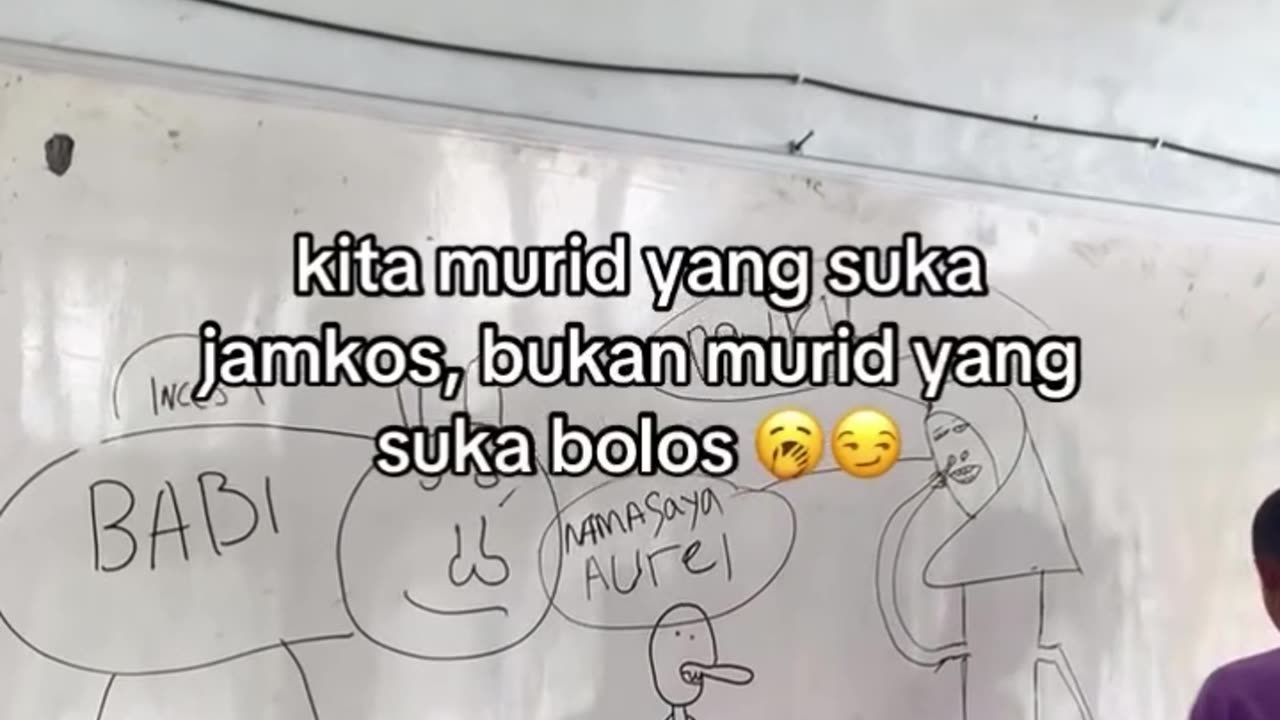 kita murid yang suka
jamkos, bukan murid yang
suka bolos 🥱😏
BABI
NAMA Saya
Aurel